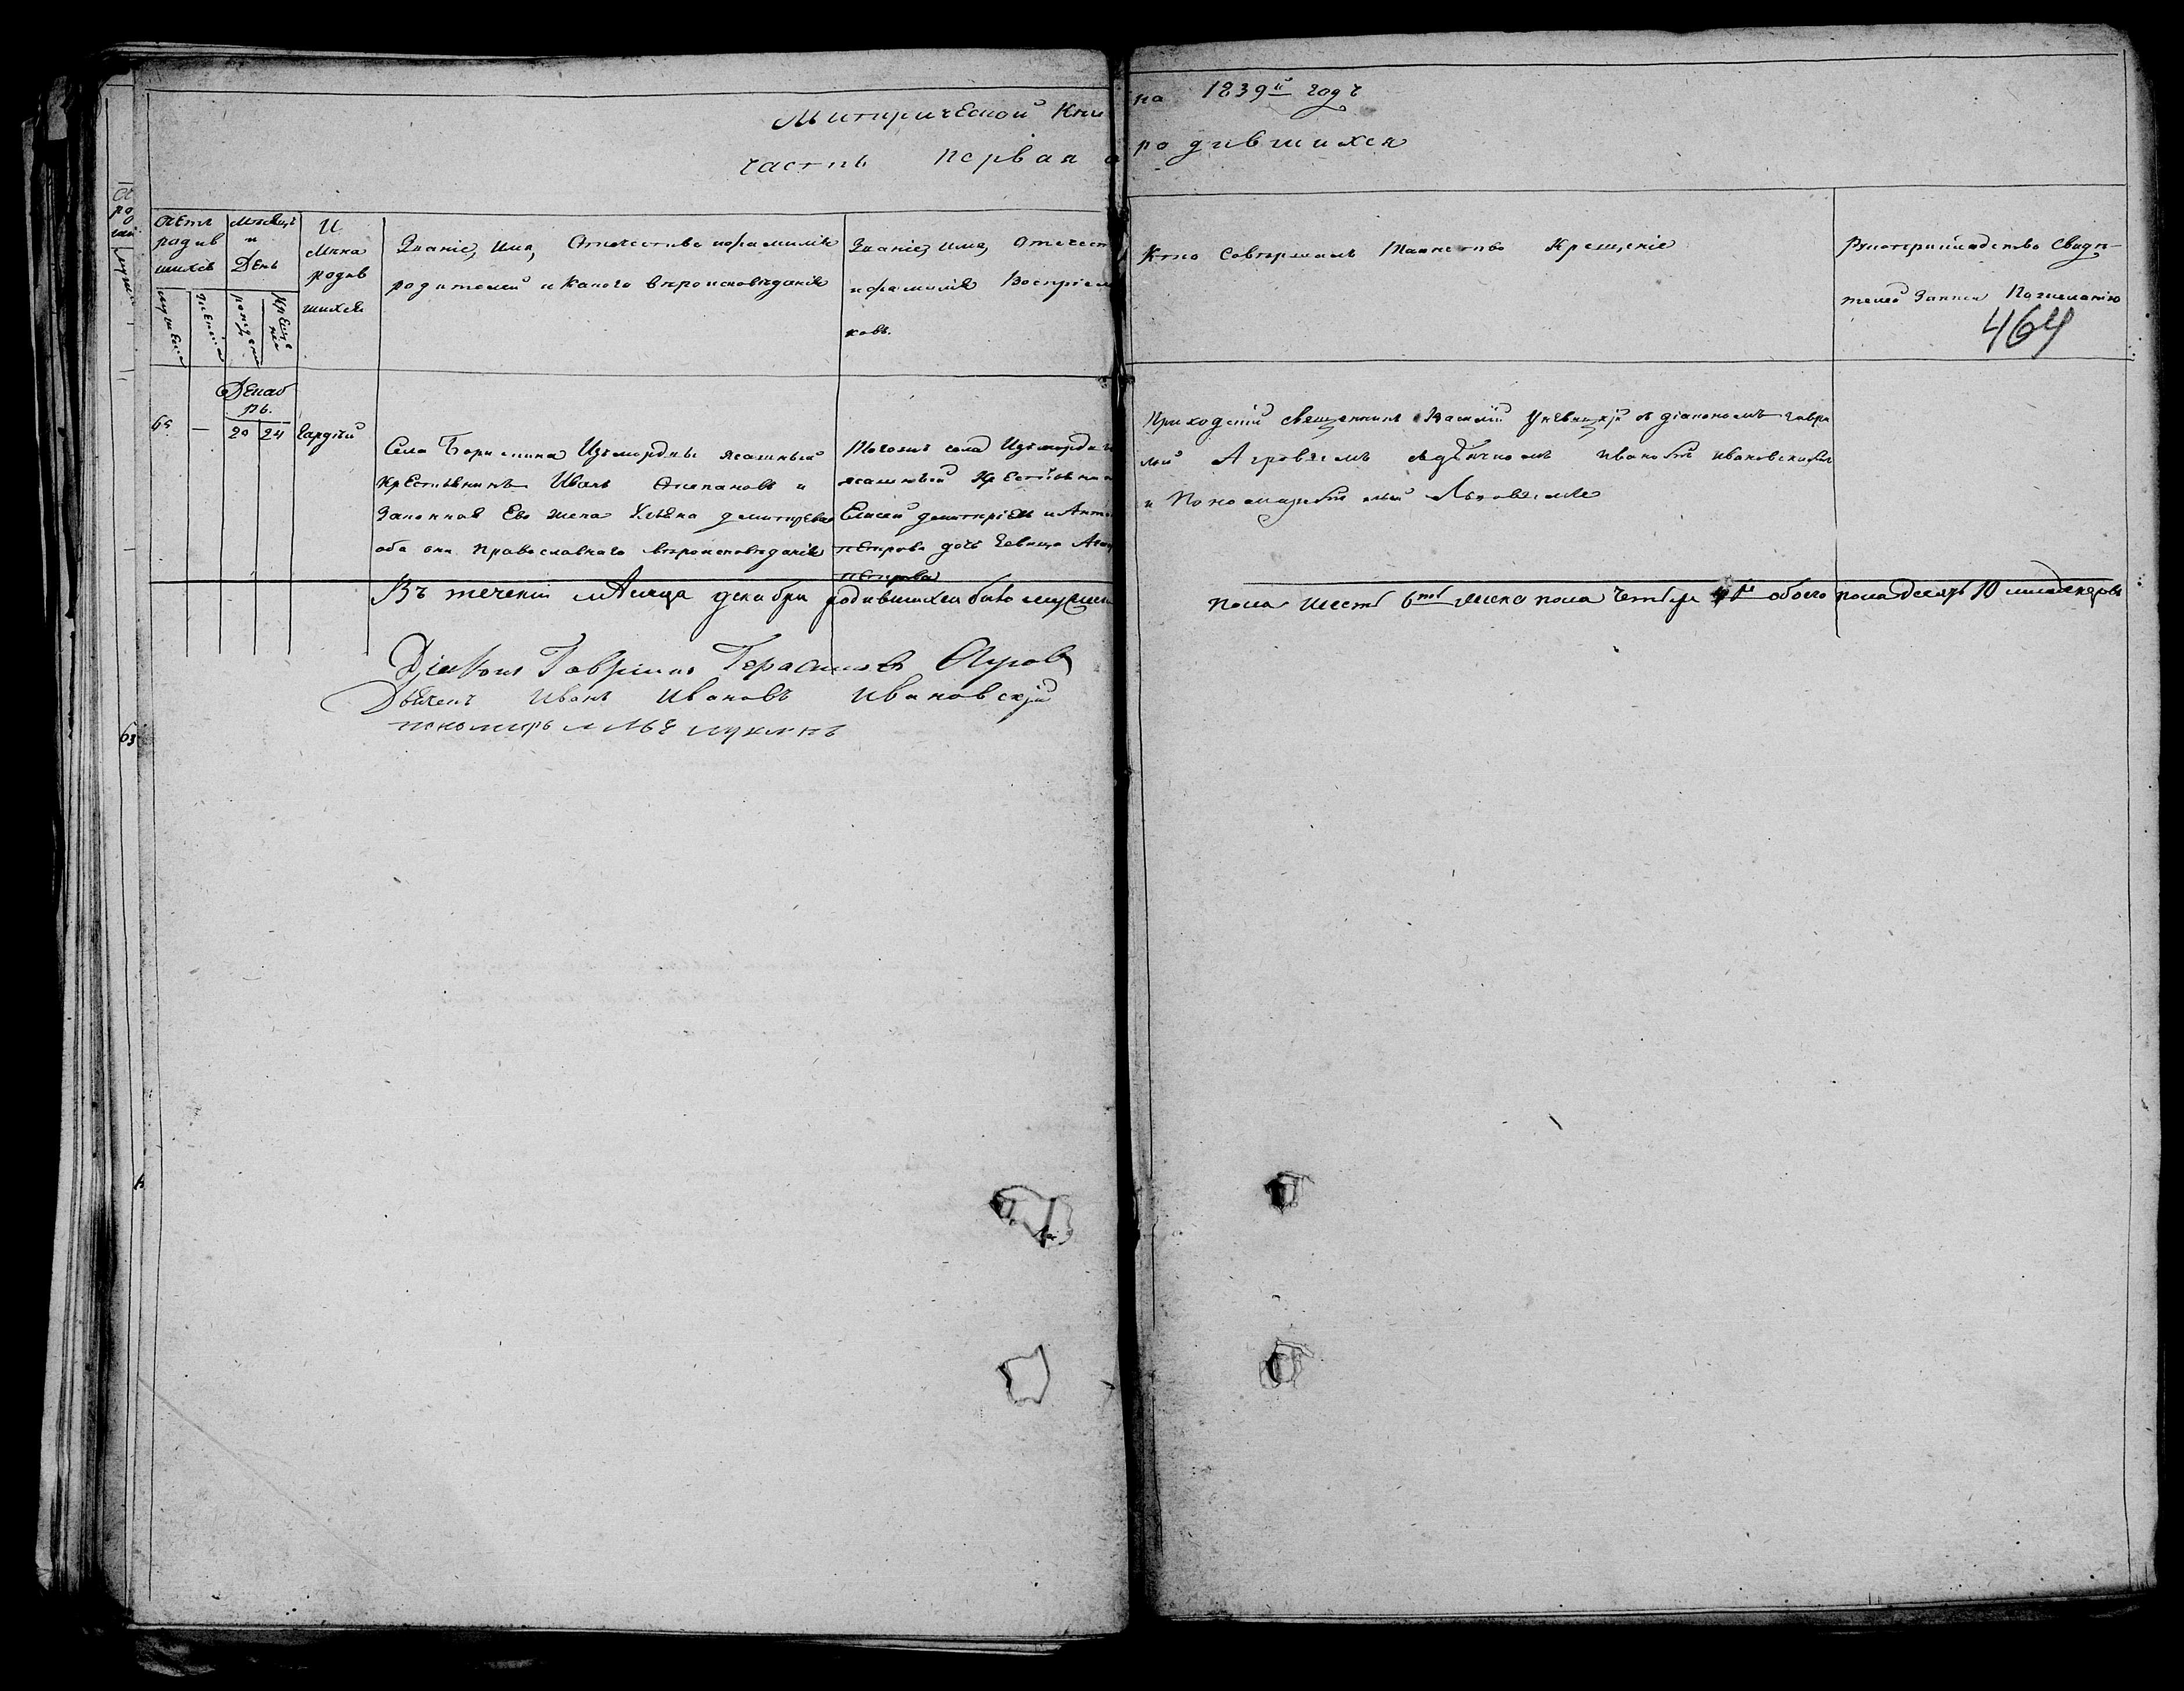 Митрической Кни
на 1839й годъ
часть первая о
родившихся
Счетъ родившихся
Месяцъ и День
Имена родившихся
мужеска
женска
рожденія
крещенія
Званіе, Имя, Отечество и фамилія
родителей и какого вероисповеданія
Званіе, имя, Отечест
и фамилія Воспріем
ковъ.
Кто Совершалъ Таинство Крещеніе
Рукоприкладство Свидѣ-
телей Записи По желанію
464
Декаб
рь.
65 — 20 24 Гордѣй
Села Борискина Изъ мордвы ясашный
крестьянинъ Иванъ Степановъ и
Законная Его жена Улѣяна
оба они Православного вероисповеданія
Тогожъ села Изъ мордвы
ясашный Крестьянин
Елисей и Анто
петрова дочь девица
петрова
Приходскій священникъ Василій съ діакономъ Гаври
лой дьячкомъ Иваномъ Ивановскимъ
и Пономаремъ
Въ теченіи месяца декабря родившихся было мужеск
пола шесть 6ть женска пола четыре 4ре обоего пола десять 10 младенцовъ
Діаконъ Гавріилъ Герасимовъ
Дьячекъ Иванъ Ивановъ Ивановскій
пономарь
63